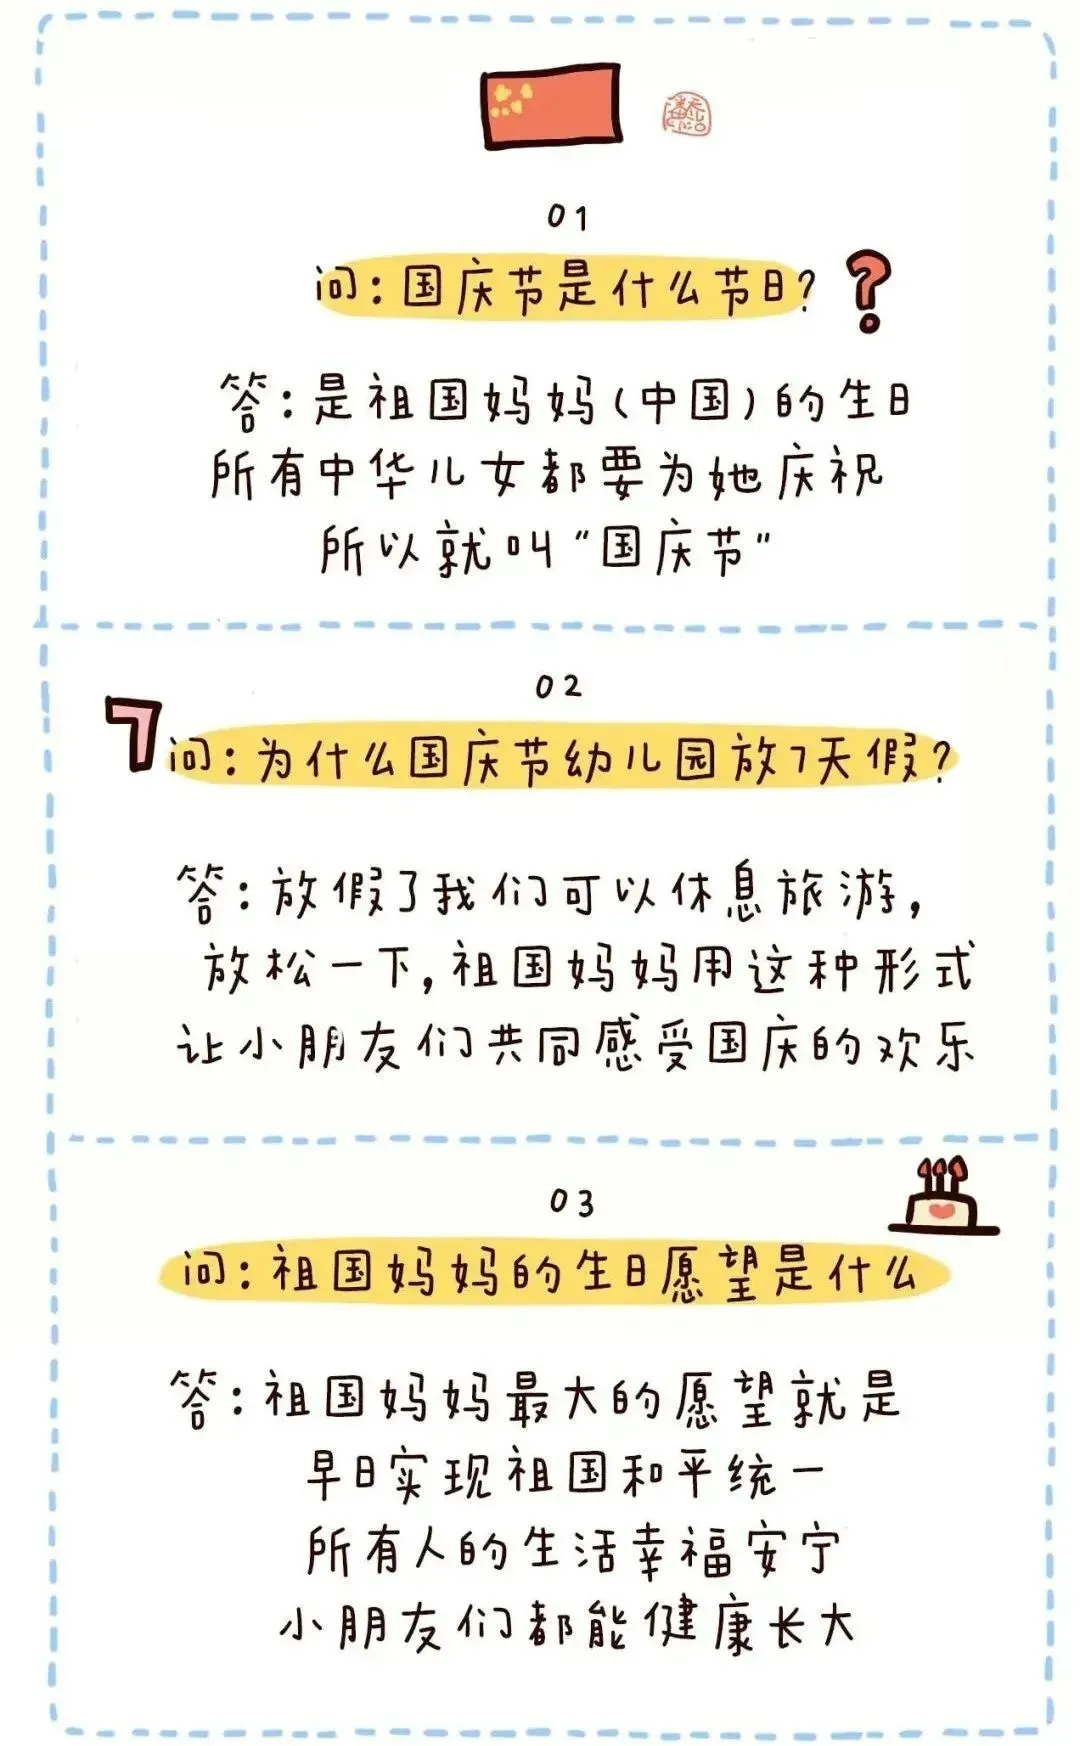 01
问:国庆节是什么节日?
答:是祖国妈妈(中国)的生日
所有中华儿女都要为她庆祝
所以就叫"国庆节"
02
问:为什么国庆节幼儿园放7天假?
答:放假了我们可以休息旅游,
放松一下,祖国妈妈用这种形式
让小朋友们共同感受国庆的欢乐
03
问:祖国妈妈的生日愿望是什么
答:祖国妈妈最大的愿望就是
早日实现祖国和平统一
所有人的生活幸福安宁
小朋友们都能健康长大